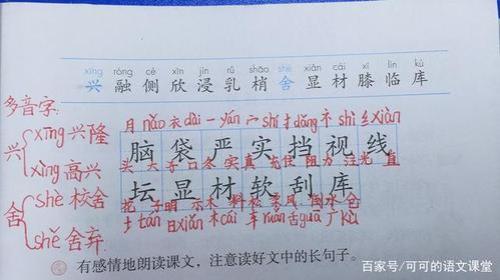 xīng róng cè xīn jìn rǔ shāo shè xiǎn cái xī lín kù
兴 融 侧 欣 浸 乳 梢 舍 显 材 膝 临 库
多音字:
兴 xīng 兴隆
xìng 高兴
舍 shè 校舍
shě 舍弃.
月 nǎo 衣 dài 一 yán 宀 shí 扌 dǎng 礻 shì 纟 xiàn
脑 袋 严 实 挡 视 线
头 大 子 口 冬 实 真 充 住 阻 力 注 光 直
坛 显 材 软 刮 库
花 子 明 示 木 料 松 柔 风 国 水 仓
土 tán 日 xiǎn 木 cái 车 ruǎn 舌 guā 广 kù
有感情地朗读课文,注意读好文中的长句子。
百家号/可可的语文课堂